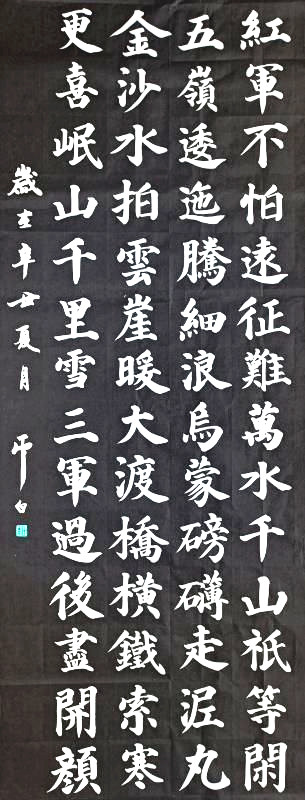 紅軍不怕遠征難萬水千山祇等閑
五嶺逶迤騰細浪烏蒙磅礴走泥丸
金沙水拍雲崖暖大渡橋橫鐵索寒
更喜岷山千里雪三軍過後盡開顔
歲在辛丑夏月 白